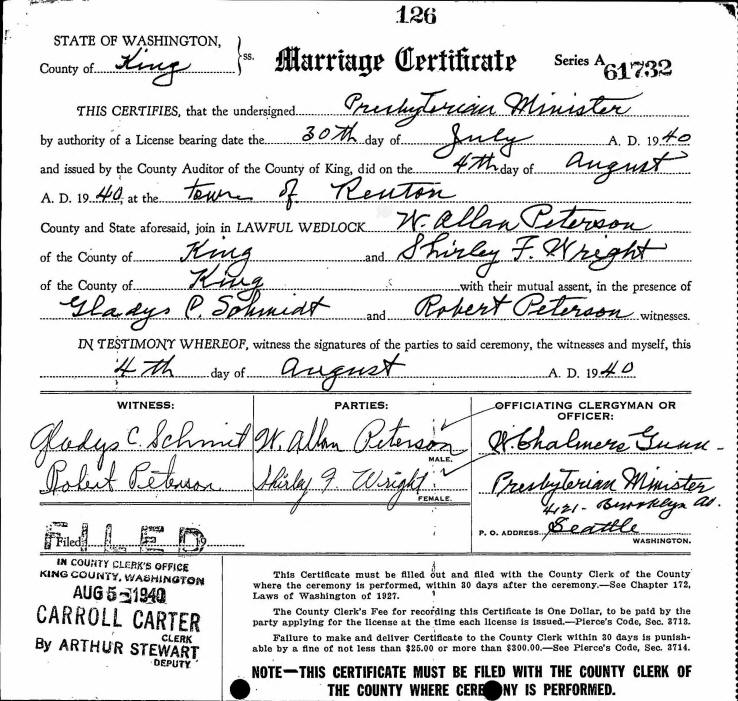 126
STATE OF WASHINGTON,
County of King } ss.
Marriage Certificate
Series A 61732
THIS CERTIFIES, that the undersigned Presbyterian Minister
by authority of a License bearing date the 30th day of July A. D. 1940
and issued by the County Auditor of the County of King, did on the 4th day of August
A. D. 1940, at the town of Renton
County and State aforesaid, join in LAWFUL WEDLOCK W. Allan Peterson
of the County of King and Shirley F. Wright
of the County of King with their mutual assent, in the presence of
Gladys C. Schmidt and Robert Peterson witnesses.
IN TESTIMONY WHEREOF, witness the signatures of the parties to said ceremony, the witnesses and myself, this
4th day of August A. D. 1940
WITNESS:
Gladys C. Schmit
Robert Peterson
PARTIES:
W. Allan Peterson
MALE.
Shirley F. Wright
FEMALE.
OFFICIATING CLERGYMAN OR
OFFICER:
W Chalmers Gunn
Presbyterian Minister
4121 - Brooklyn Av.
P. O. ADDRESS Seattle
WASHINGTON.
FILED
Filed
IN COUNTY CLERK'S OFFICE
KING COUNTY, WASHINGTON
AUG 5 - 1940
CARROLL CARTER
CLERK
By ARTHUR STEWART
DEPUTY
This Certificate must be filled out and filed with the County Clerk of the County
where the ceremony is performed, within 30 days after the ceremony.—See Chapter 172,
Laws of Washington of 1927.
The County Clerk's Fee for recording this Certificate is One Dollar, to be paid by the
party applying for the license at the time each license is issued.—Pierce's Code, Sec. 3713.
Failure to make and deliver Certificate to the County Clerk within 30 days is punish-
able by a fine of not less than $25.00 or more than $300.00.—See Pierce's Code, Sec. 3714.
NOTE—THIS CERTIFICATE MUST BE FILED WITH THE COUNTY CLERK OF
THE COUNTY WHERE CEREMONY IS PERFORMED.